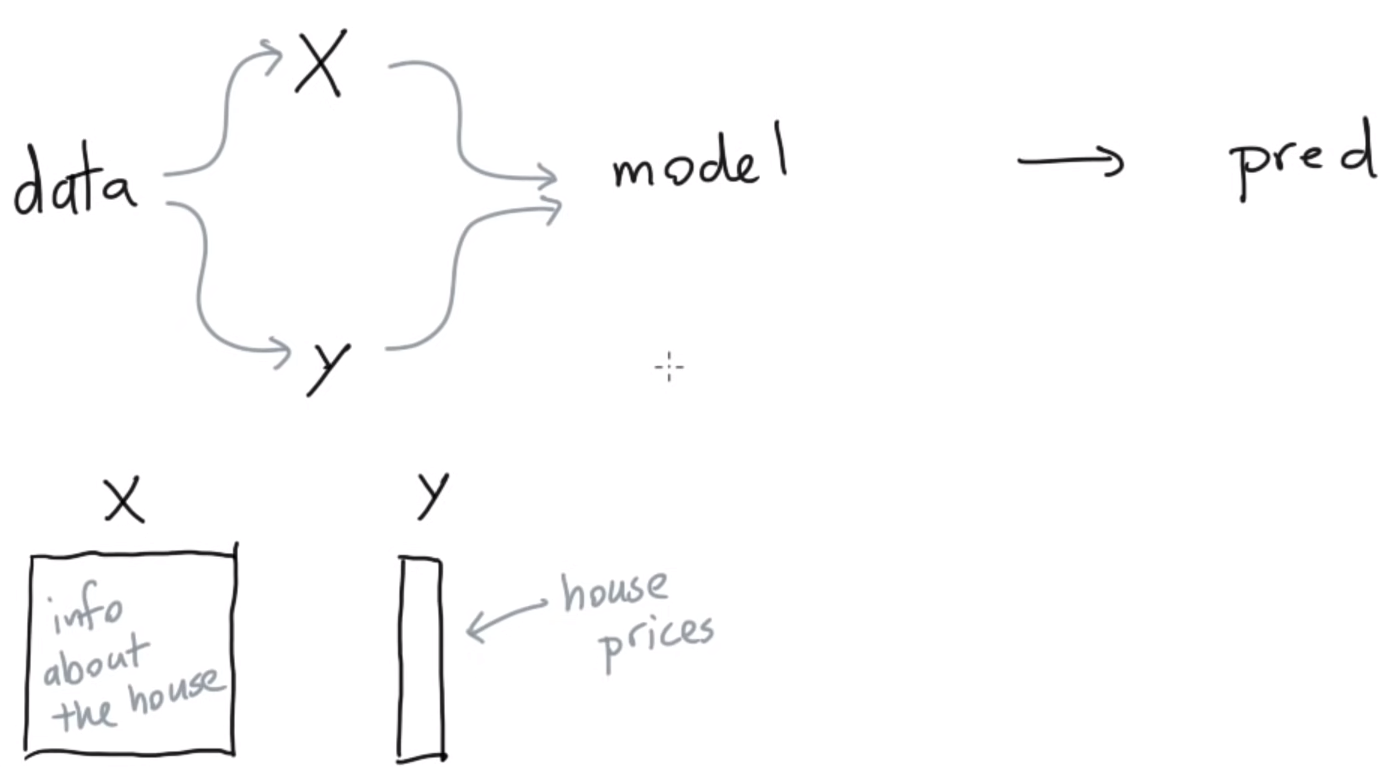 X
data
model
pred
y
X
y
info
about
the house
house
prices